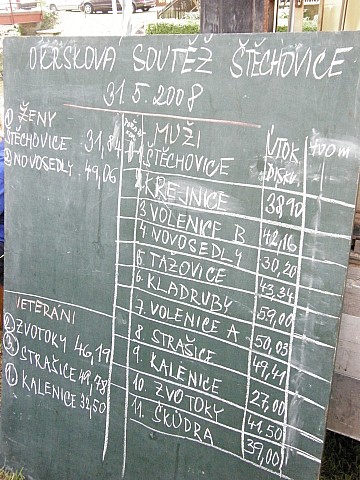 OKRSKOVÁ SOUTĚŽ ŠTĚCHOVICE
31.5.2008
① ŽENY
ŠTĚCHOVICE 31,84
② NOVOSEDLY 49,06
MUŽI
ÚTOK 400 m
1. ŠTĚCHOVICE DISKV.
2. KREJNICE 38,90
3. VOLENICE B 42,16
4. NOVOSEDLY 30,20
5. TAŽOVICE 43,34
6. KLADRUBY 59,00
7. VOLENICE A 50,03
8. STRAŠICE 49,41
9. KALENICE 27,00
10. ZVOTOKY 41,50
11. ŠKŮDRA 39,00
VETERÁNI
② ZVOTOKY 46,19
③ STRAŠICE 49,78
① KALENICE 32,50